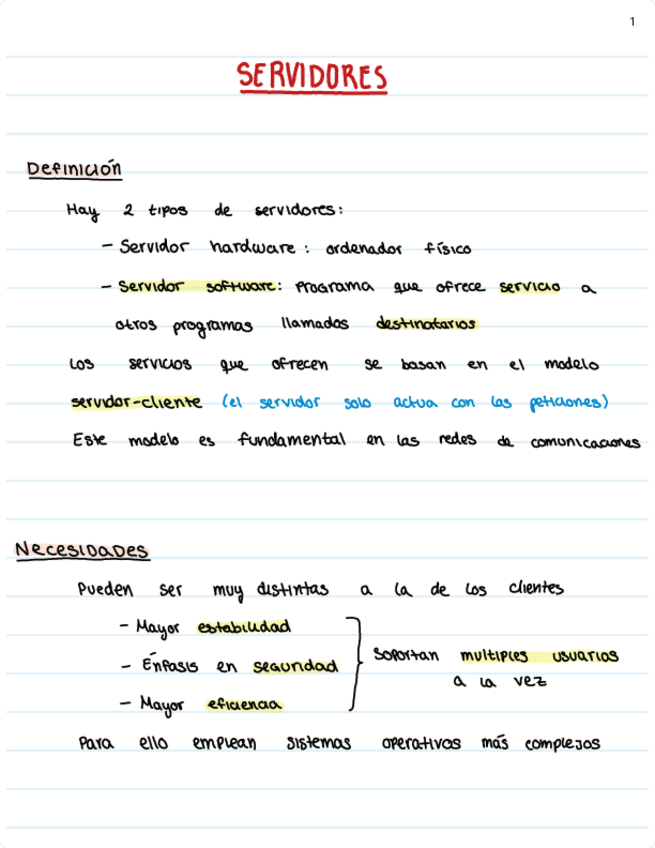 1
SERVIDORES
Definición
Hay 2 tipos de servidores:
- Servidor hardware: ordenador físico
- Servidor software: Programa que ofrece servicio a
otros programas llamados destinatarios
Los servicios que ofrecen se basan en el modelo
servidor-cliente (el servidor solo actua con las peticiones)
Este modelo es fundamental en las redes de comunicaciones
Necesidades
Pueden ser muy distintas a la de los clientes
- Mayor estabilidad
- Énfasis en seguridad
Soportan multiples usuarios
a la vez
- Mayor eficiencia
Para ello emplean sistemas operativos más complejos